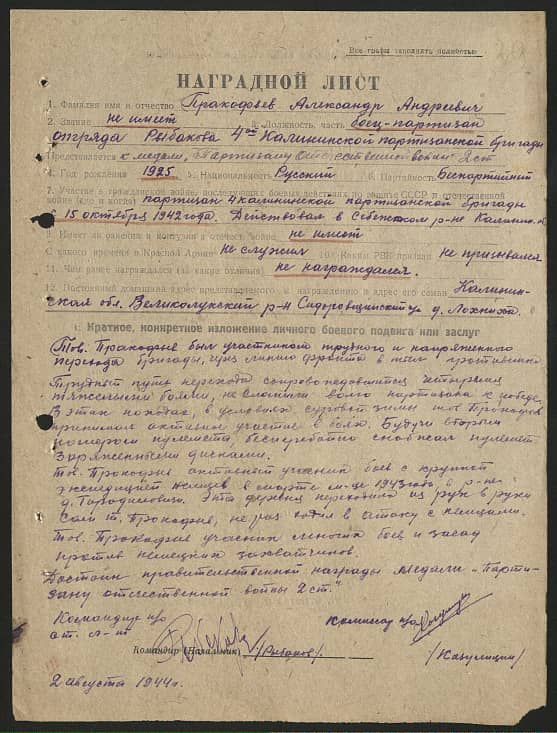 Все графы заполнять полностью
НАГРАДНОЙ ЛИСТ
1. Фамилия имя и отчество Прокофьев Александр Андреевич
2. Звание не имеет 3. Должность, часть боец-партизан
отряда Рыбакова 4ой Калининской партизанской бригады
Представляется к медали „Партизану Отечественной войны" 2 ст
4. Год рождения 1925 5. Национальность Русский 6. Партийность Беспартийный
7. Участие в гражданской войне, последующих боевых действиях по защите СССР и отечественной
войне (где и когда) партизан 4 калининской партизанской бригады
с 15 октября 1942 года. Действовал в Себежском р-не Калинин. об
8. Имеет ли ранения и контузии в отечеств. войне не имеет
С какого времени в Красной Армии не служил 10. Каким РВК призван не призывался
11. Чем ранее награждался (за какие отличия) не награждался.
12. Постоянный домашний адрес представляемого к награждению и адрес его семьи Калинин-
ская обл. Великолукский р-н Сидоровщинский д.
I. Краткое, конкретное изложение личного боевого подвига или заслуг
Тов. Прокофьев был участником трудного и напряженного
перехода бригады, через линию фронта в тыл противника
Трудный путь перехода сопровождавшийся четырьмя
тяжелыми боями, не сломили волю партизана к победе.
В этих походах, в условиях суровой зимы тов Прокофьев
принимал активное участие в боях. Будучи вторым
номером пулемета, бесперебойно снабжал пулемет
заряженными дисками.
Тов. Прокофьев активный участник боев с крупной
экспедицией немцев в марте м-це 1943 года в р-не
д. Эта деревня переходила из рук в руки
Сам т. Прокофьев, не раз ходил в атаку с немцами.
Тов. Прокофьев участник многих боев и засад
против немецких захватчиков.
Достоин правительственной награды медали „Парти-
зану отечественной войны 2 ст."
Командир п/о
ст. л-нт
Комиссар п/о
Командир (Начальник) /Рыбаков/
2 августа 1944 г.